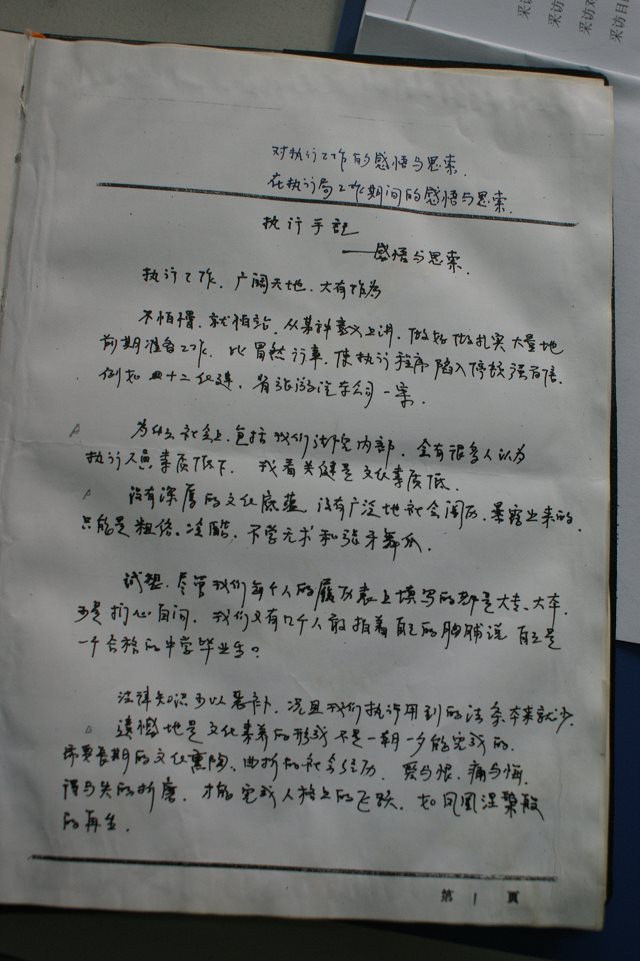 采访
采访
采访对
采访日
对执行工作的感悟与思索.
在执行局工作期间的感悟与思索.
执行手记
——感悟与思索.
执行工作, 广阔天地, 大有作为
不怕慢, 就怕站, 从某种意义上讲, 做好做扎实大量地
前期准备工作, 比冒然行事, 使执行程序陷入停顿强百倍.
例如 四十二 汽车公司一案.
为什么社会上, 包括我们法院内部, 会有很多人认为
执行人员素质低下. 我看关健是文化素质低.
没有深厚的文化底蕴, 没有广泛地社会阅历, 暴露出来的,
只能是粗俗、冷酷, 不学无术和张牙舞爪.
试想, 尽管我们每个人的履历表上填写的都是大专、大本,
可是扪心自问, 我们又有几个人敢拍着自己的胸脯说自己是
一个合格的中学毕业生?
法律知识可以恶补, 况且我们执行用到的法条本来就少.
遗憾地是文化素养的形成不是一朝一夕能完成的.
需要长期的文化熏陶、曲折的社会经历, 爱与恨, 痛与悔,
得与失的折磨, 才能完成人格上的飞跃, 如凤凰涅槃般
的再生.
第 1 頁